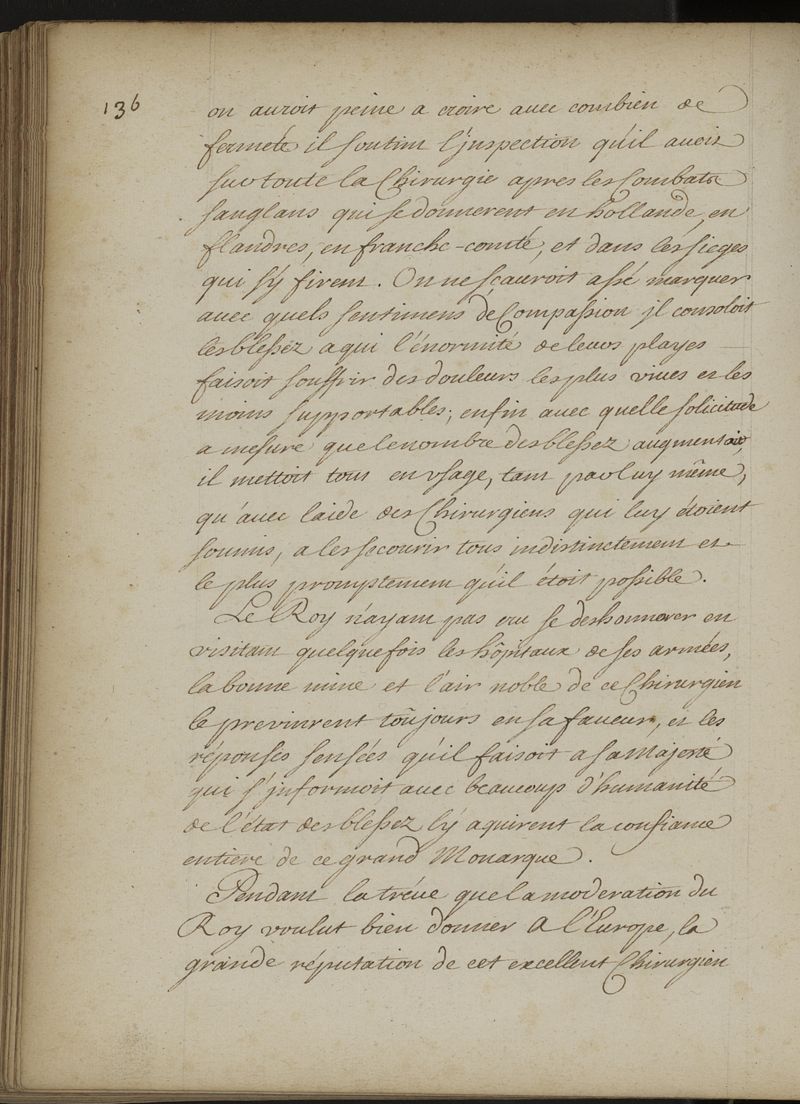 136
on auroit peine a croire avec combien de
fermeté il soutint l'jnspection qu'il avoit
sur toute la Chirurgie apres les Combats
sanglans qui se donnerent en hollande, en
flandres, en franche-comté, et dans les sieges
qui s'y firent. On ne scauroit assé marquer
avec quels sentimens de Compassion jl consoloit
les blessez a qui l'énormité de leurs playes
faisoit souffrir des douleurs les plus vives et les
moins supportables; enfin avec quelle solicitude
a mesure que le nombre des blessez augmentoit,
il mettoit tout en vsage, tant par luy même,
qu'avec l'aide des Chirurgiens qui luy étoient
soumis, a les secourir tous indistinctement et
le plus promptement qu'il étoit possible.
Le Roy n'ayant pas cru se deshonnorer en
visitant quelquefois les hôpitaux de ses armées,
la bonne mine et l'air noble de ce Chirurgien
le previnrent toûjours en sa faveur, et les
réponses sensées qu'il faisoit a sa Majesté
qui s'jnformoit avec beaucoup d'humanité
de l'état des blessez lÿ aquirent la confiance
entiere de ce grand Monarque.
Pendant la tréve que la moderation du
Roy voulut bien donner a l'Europe, la
grande réputation de cet excellent Chirurgien